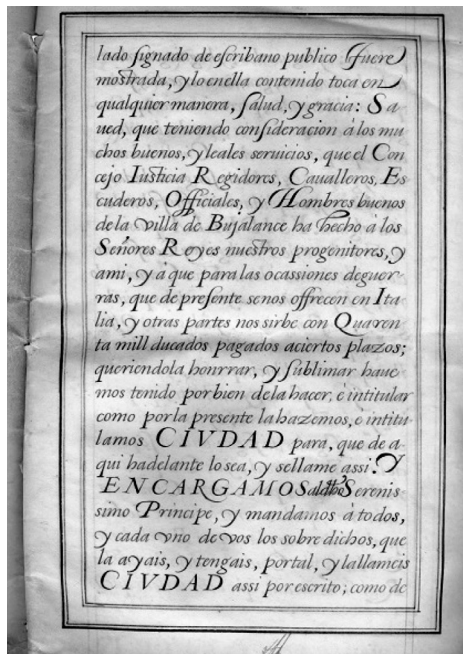 lado signado de escribano publico fuere
mostrada, y lo en ella contenido toca en
qualquier manera, salud, y gracia: Sa
ued, que teniendo consideracion á los mu
chos buenos, y leales seruicios, que el Con
cejo Iusticia Regidores, Caualleros, Es
cuderos, Officiales, y Hombres buenos
de la villa de Bujalance ha hecho á los
Señores Reyes nuestros progenitores, y
ami, y á que para las ocassiones de guer
ras, que de presente se nos offrecen en Ita
lia, y otras partes nos sirbe con Quaren
ta mill ducados pagados aciertos plazos;
queriendola honrrar, y sublimar haue
mos tenido por bien de la hacer, é intitular
como por la presente la hazemos, e intitu
lamos CIVDAD para, que de a
qui hadelante lo sea, y se llame assi: Y
ENCARGAMOS al dho Serenis
simo Principe, y mandamos á todos,
y cada vno de vos los sobre dichos, que
la ayais, y tengais, por tal, y la llameis
CIVDAD assi por escrito; como de